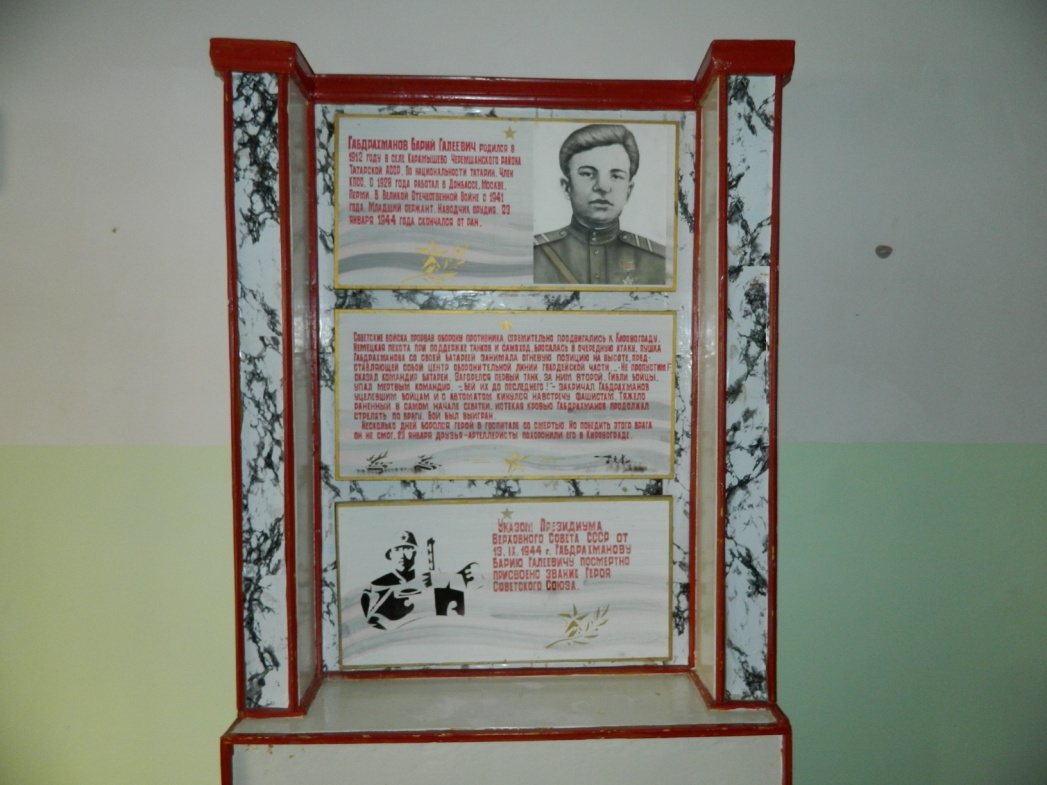 Габдрахманов Барий Галеевич родился в
1912 году в селе Карамышево Черемшанского района
Татарской АССР. По национальности татарин. Член
КПСС. С 1929 года работал в Донбассе, Москве,
Перми. В Великой Отечественной Войне с 1941
года. Младший сержант. Наводчик орудия. 23
января 1944 года скончался от ран.
Советские войска, прорвав оборону противника, стремительно продвигались к Кировограду.
Немецкая пехота при поддержке танков и самоход. бросалась в очередную атаку. Пушка
Габдрахманова со своей батареей занимала огневую позицию на высоте, пред-
ставляющей собой центр оборонительной линии гвардейской части. „-Не пропустим!"
сказал командир батареи. Загорелся первый танк, за ним второй. Гибли бойцы,
упал мертвым командир. -„Бей их до последнего!"- закричал Габдрахманов
уцелевшим бойцам и с автоматом кинулся навстречу фашистам. Тяжело
раненный в самом начале схватки, истекая кровью Габдрахманов продолжал
стрелять по врагу. Бой был выигран.
Несколько дней боролся герой в госпитале со смертью. Но победить этого врага
он не смог. 23 января друзья-артеллеристы похоронили его в Кировограде.
Указом Президиума
Верховного Совета СССР от
13.IX.1944 г. Габдрахманову
Барию Галеевичу посмертно
присвоено звание Героя
Советского Союза.